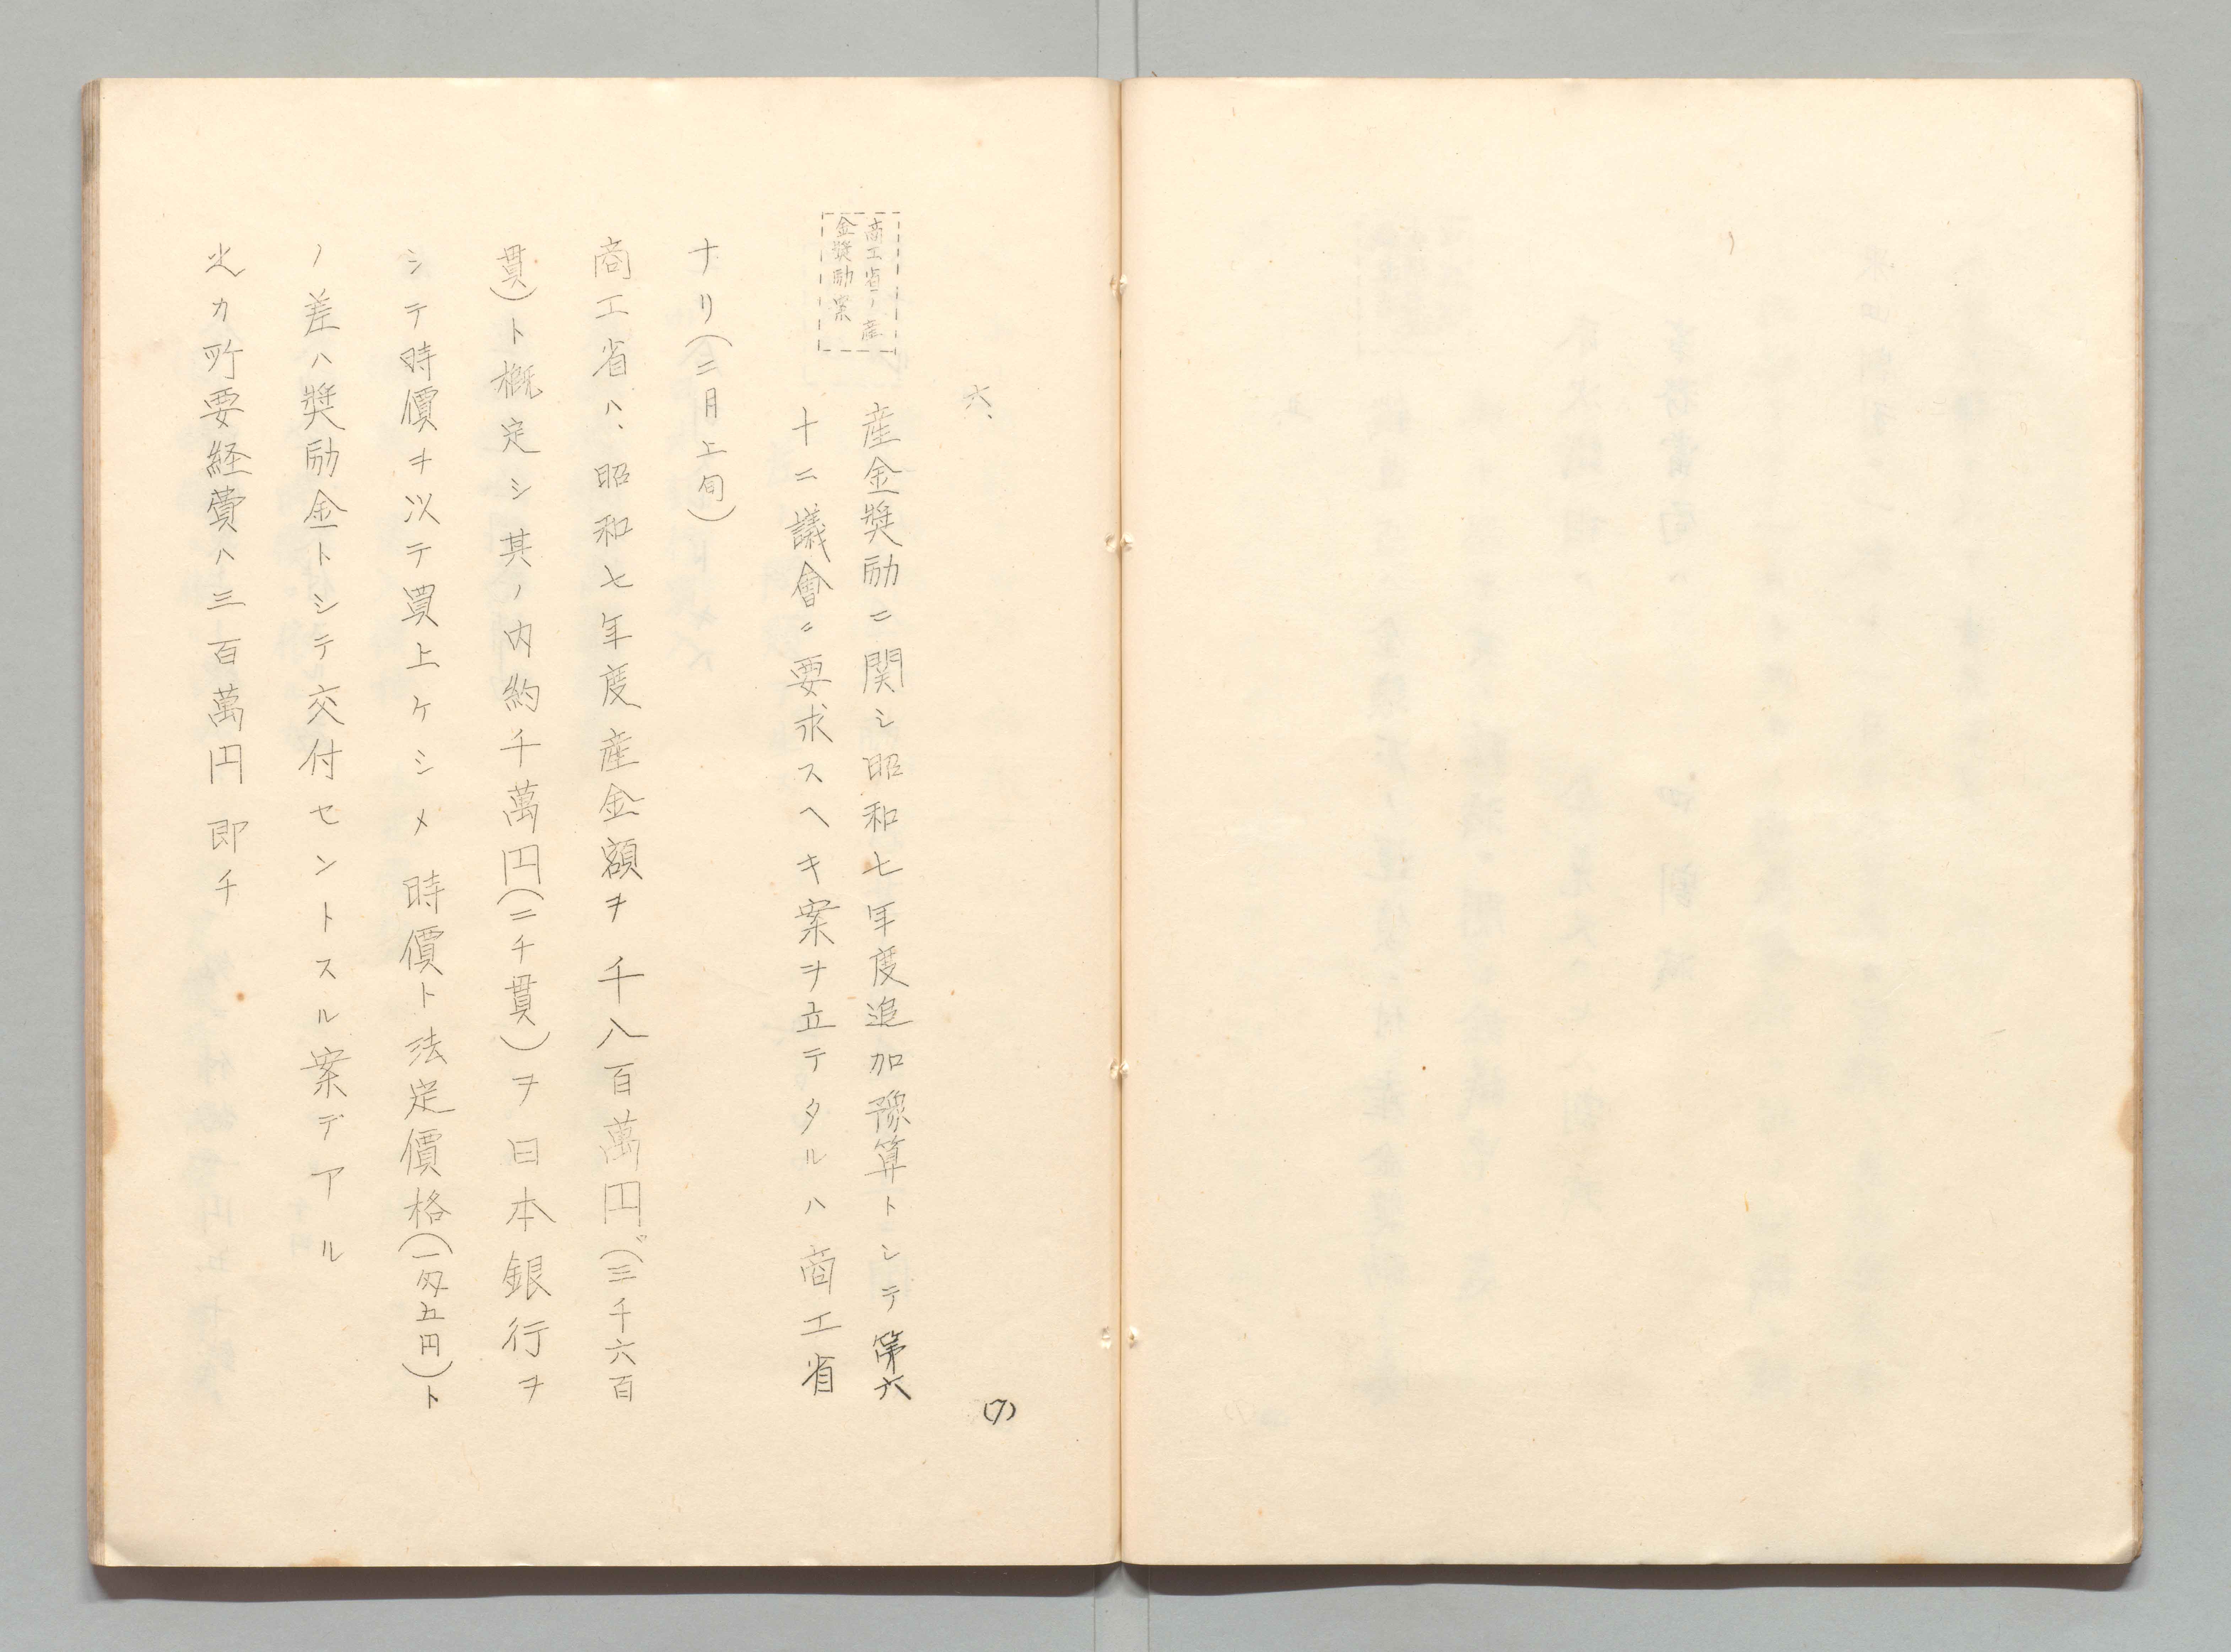 (7)
六、
商工省ノ産
金奨励案
産金奨励ニ関シ昭和七年度追加豫算トシテ第六
十二議會ニ要求スヘキ案ヲ立テタルハ商工省
ナリ(二月上旬)
商工省ハ、昭和七年度産金額ヲ千八百萬円(三千六百
貫)ト概定シ其ノ内約千萬円(二千貫)ヲ日本銀行ヲ
シテ時價ヲ以テ買上ケシメ時價ト法定價格(一匁五円)ト
ノ差ハ奨励金トシテ交付セントスル案デアル
之カ所要経費ハ三百萬円即チ